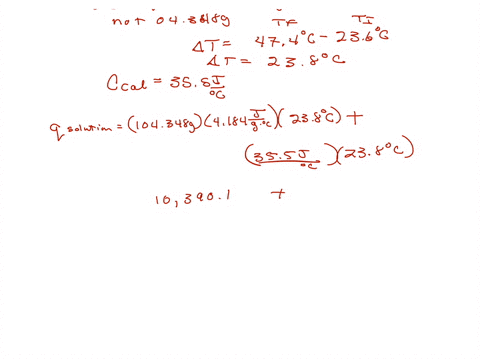 not 04.348g TF TI
ΔT = 47.4°C - 23.6°C
ΔT = 23.8°C
Ccal = 35.5 J/°C
q solution = (104.348g)(4.184 J/g·°C)(23.8°C) +
(35.5 J/°C)(23.8°C)
10,390.1 +